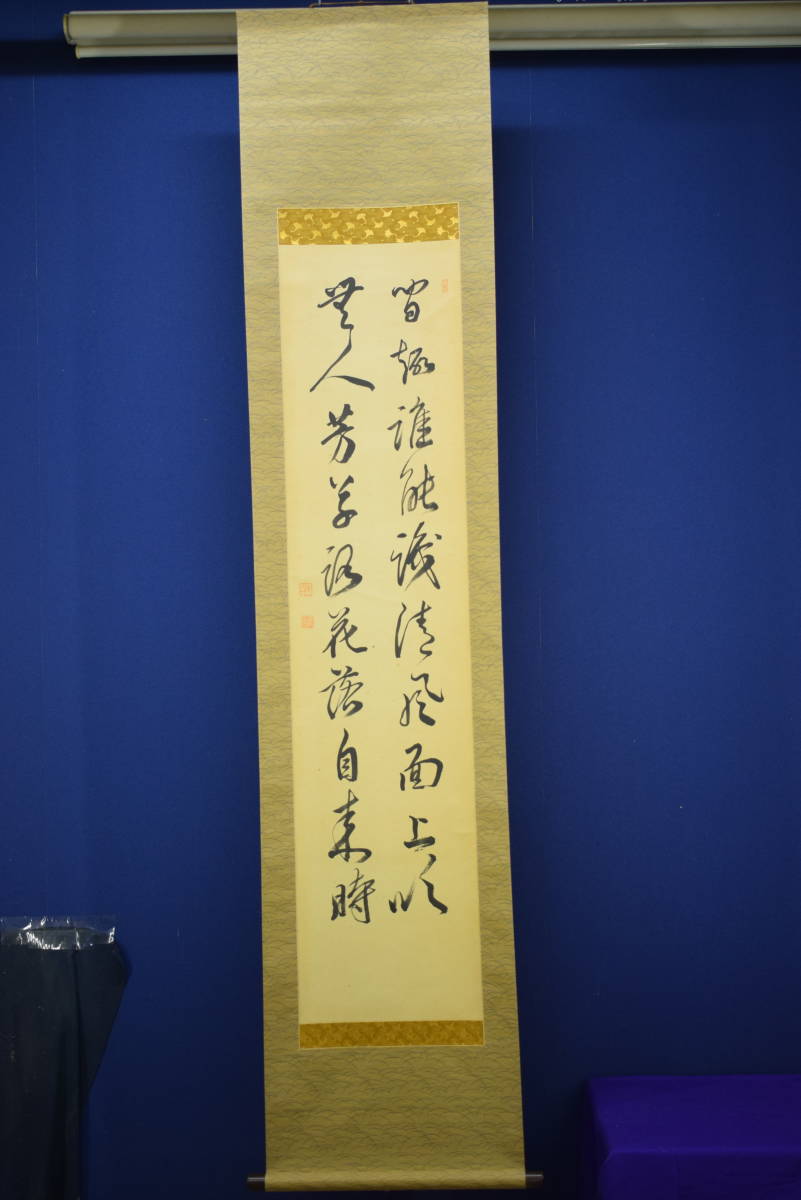 閒趣誰能識清風面上吹
無人芳草路花落自来時